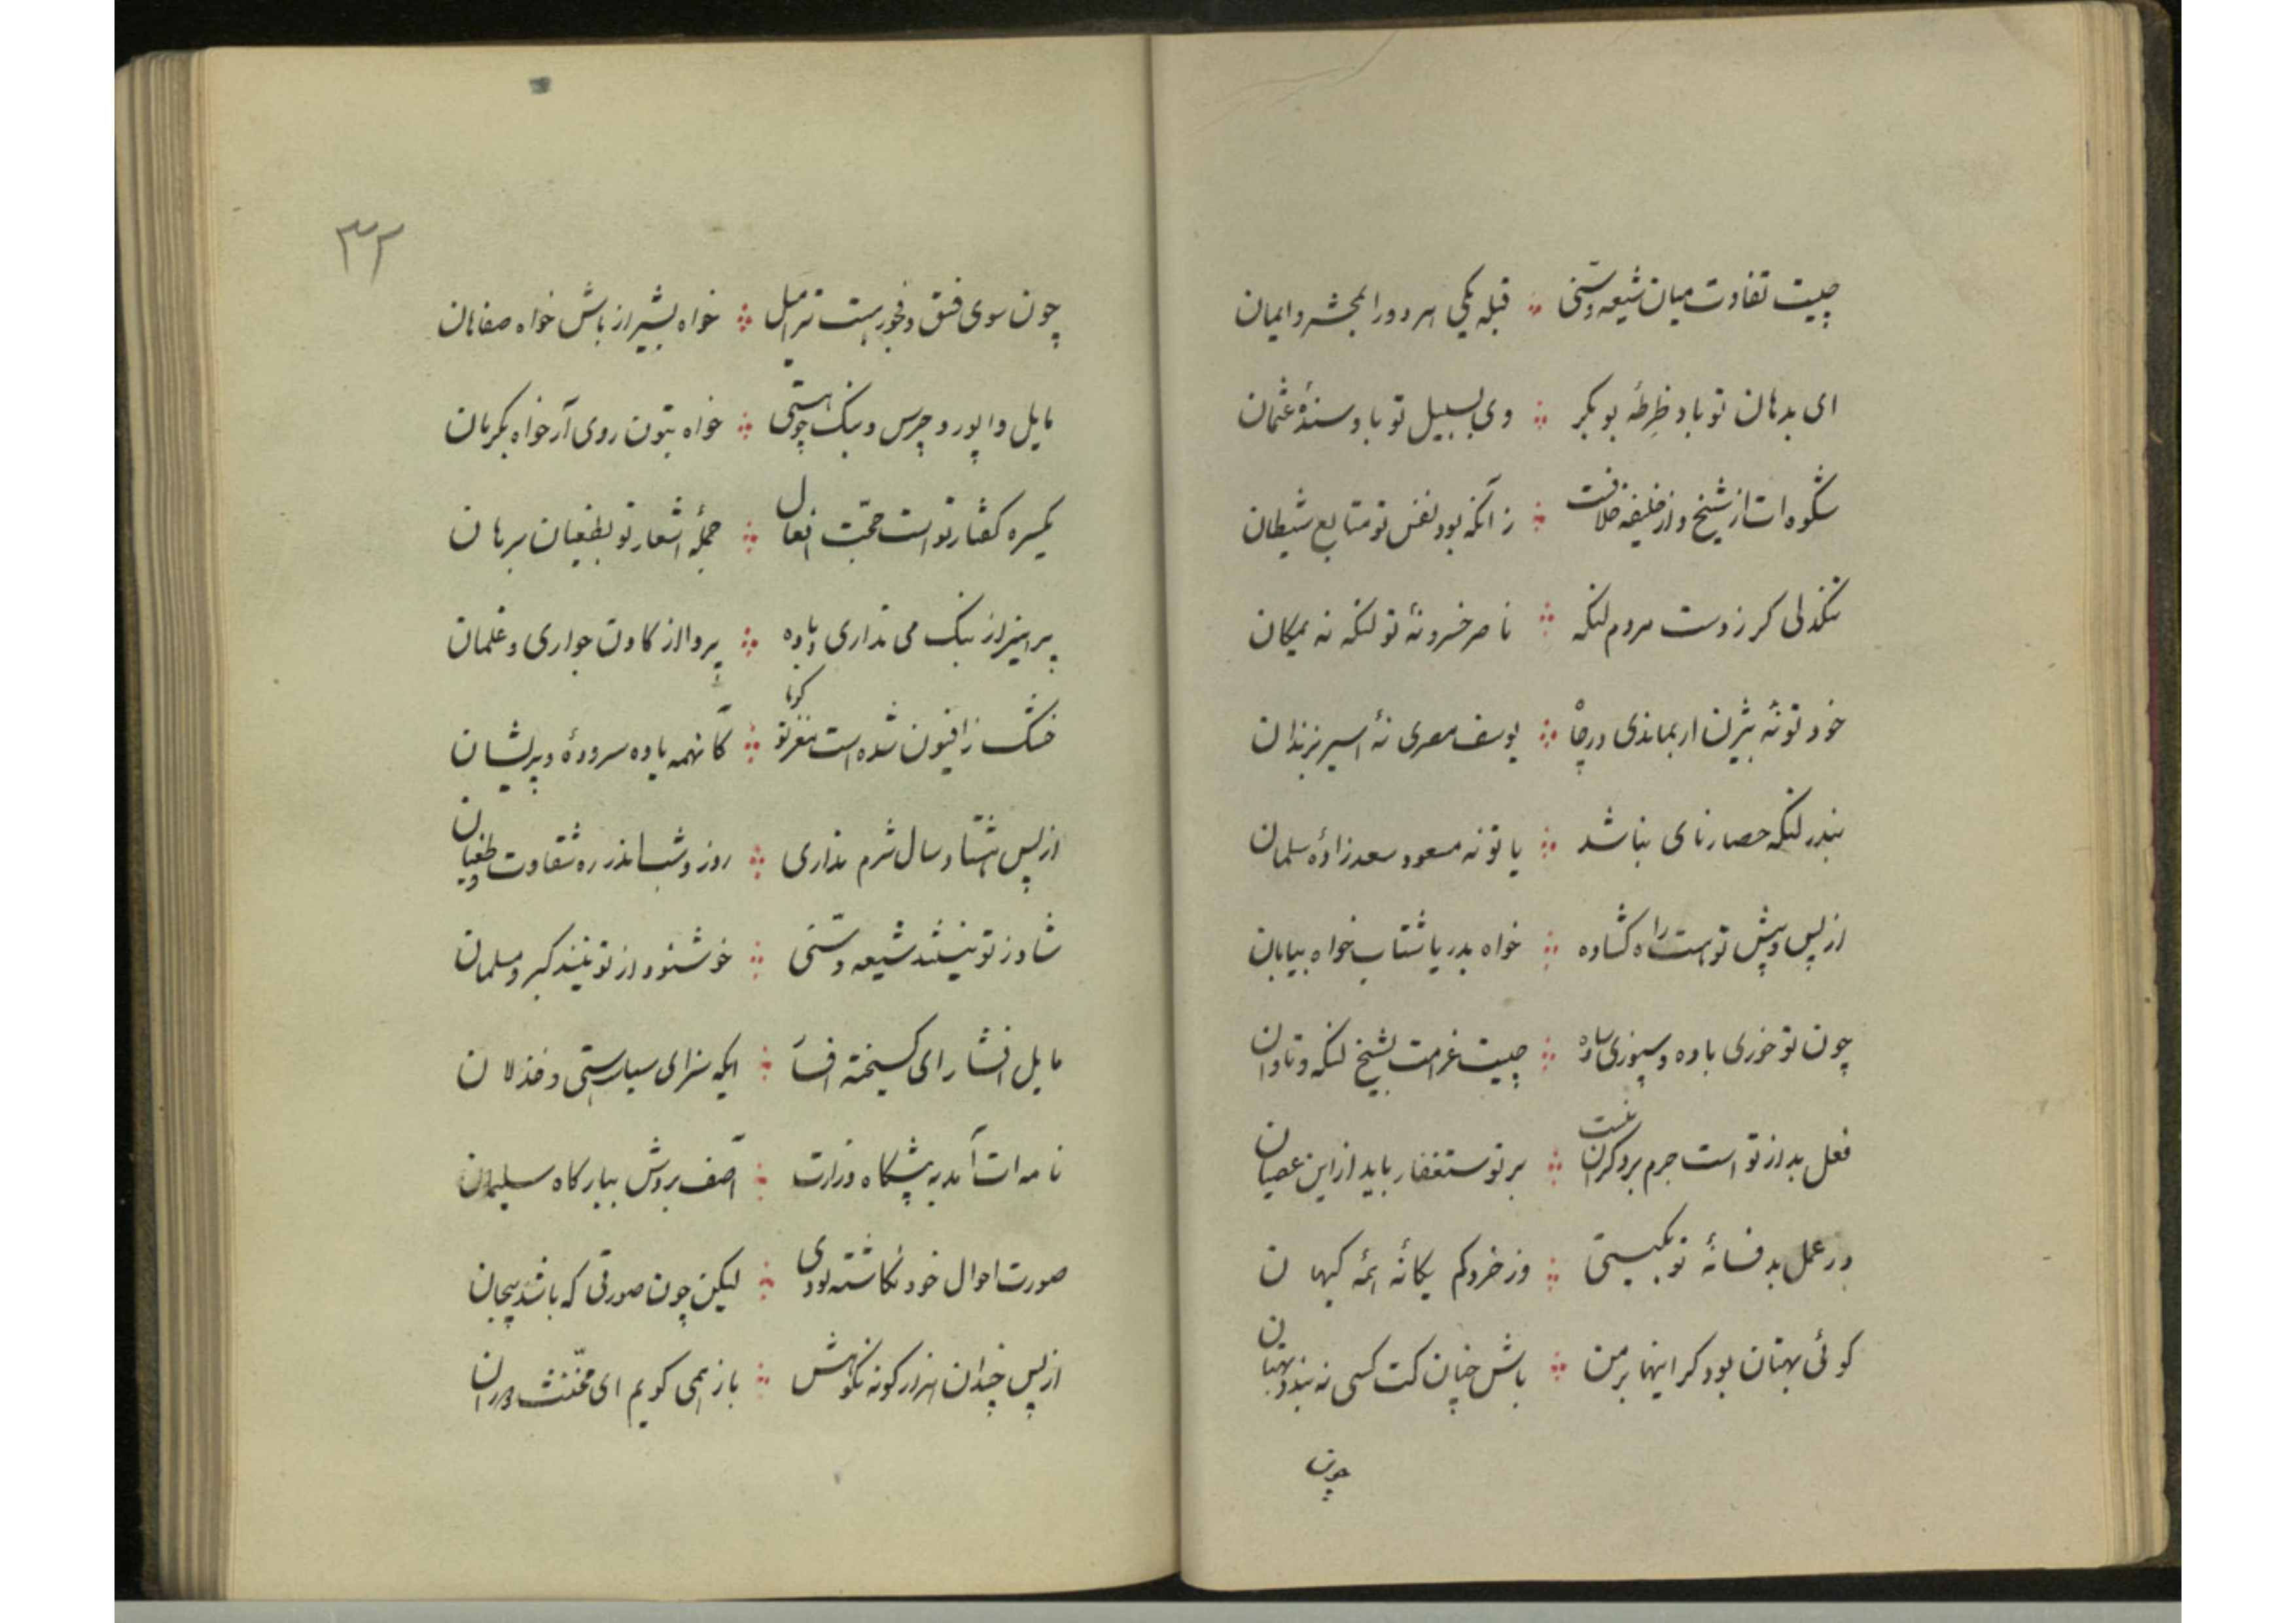 چیست تفاوت میان شیعه و سنّی ∴ قبله یکی هر دو را بمحشر و ایمان
ای بدهان تو باد ضرطهٔ بوبکر ∴ وی بسبیل تو باد سندهٔ عثمان
شکوه ات از شیخ و از خلیفه خلافست ∴ زآنکه بود نفس تو متابع شیطان
تنگدلی گر ز دست مردم لنگه ∴ ناصر خسرو نهٔ تو لنگه نه یمکان
خود تو نهٔ بیژن ار بماندی در چاه ∴ یوسف مصری نهٔ اسیر بزندان
بندر لنگه حصار نای نباشد ∴ یا تو نه مسعود سعد زادهٔ سلمان
از پس و پیش تو هست راه گشاده ∴ خواه بدریا شتاب خواه بیابان
چون تو خوری باده و سپوزی ساده ∴ چیست غرامت بشیخ لنگه و تاوان
فعل بد از تو است جرم بر دگران نیست ∴ بر تو ستغفار باید از این عصیان
در عمل بد فسانهٔ تو بگیتی ∴ وز خرد کم یگانهٔ همه کیهان
گوئی بهتان بود گر اینها بر من ∴ باش چنان کت کسی نه بندد بهتان
چون
۳۲
چون سوی فسق و فجور هست ترا میل ∴ خواه بشیراز باش خواه صفاهان
مایل وا پور و چرس و بنگ چو هستی ∴ خواه بتون روی آر خواه بکرمان
یکسره گفتار تو است حجّت افعال ∴ جملهٔ اشعار تو بطغیان برهان
پرهیز از بنگ می نداری و باده ∴ پروا از گادن جواری و غلمان
خشک ز افیون شده است مغز تو گویا ∴ کانهمه یاوه سرودهٔ و پریشان
از پس هشتاد سال شرم نداری ∴ روز و شب اندر ره شقاوت و طغیان
شاد ز تو نیستند شیعه و سنّی ∴ خوشنود از تو نیند گبر و مسلمان
مایل افشار ای گسیخته افسار ∴ ایکه سزای سیاستی و خذلان
نامه ات آمد به پیشگاه وزارت ∴ آصف بردش ببارگاه سلیمان
صورت احوال خود نگاشته بودی ∴ لیکن چون صورتی که باشد بیجان
از پس چندان هزار گونه نکوهش ∴ باز همی گویم ای مخنّث